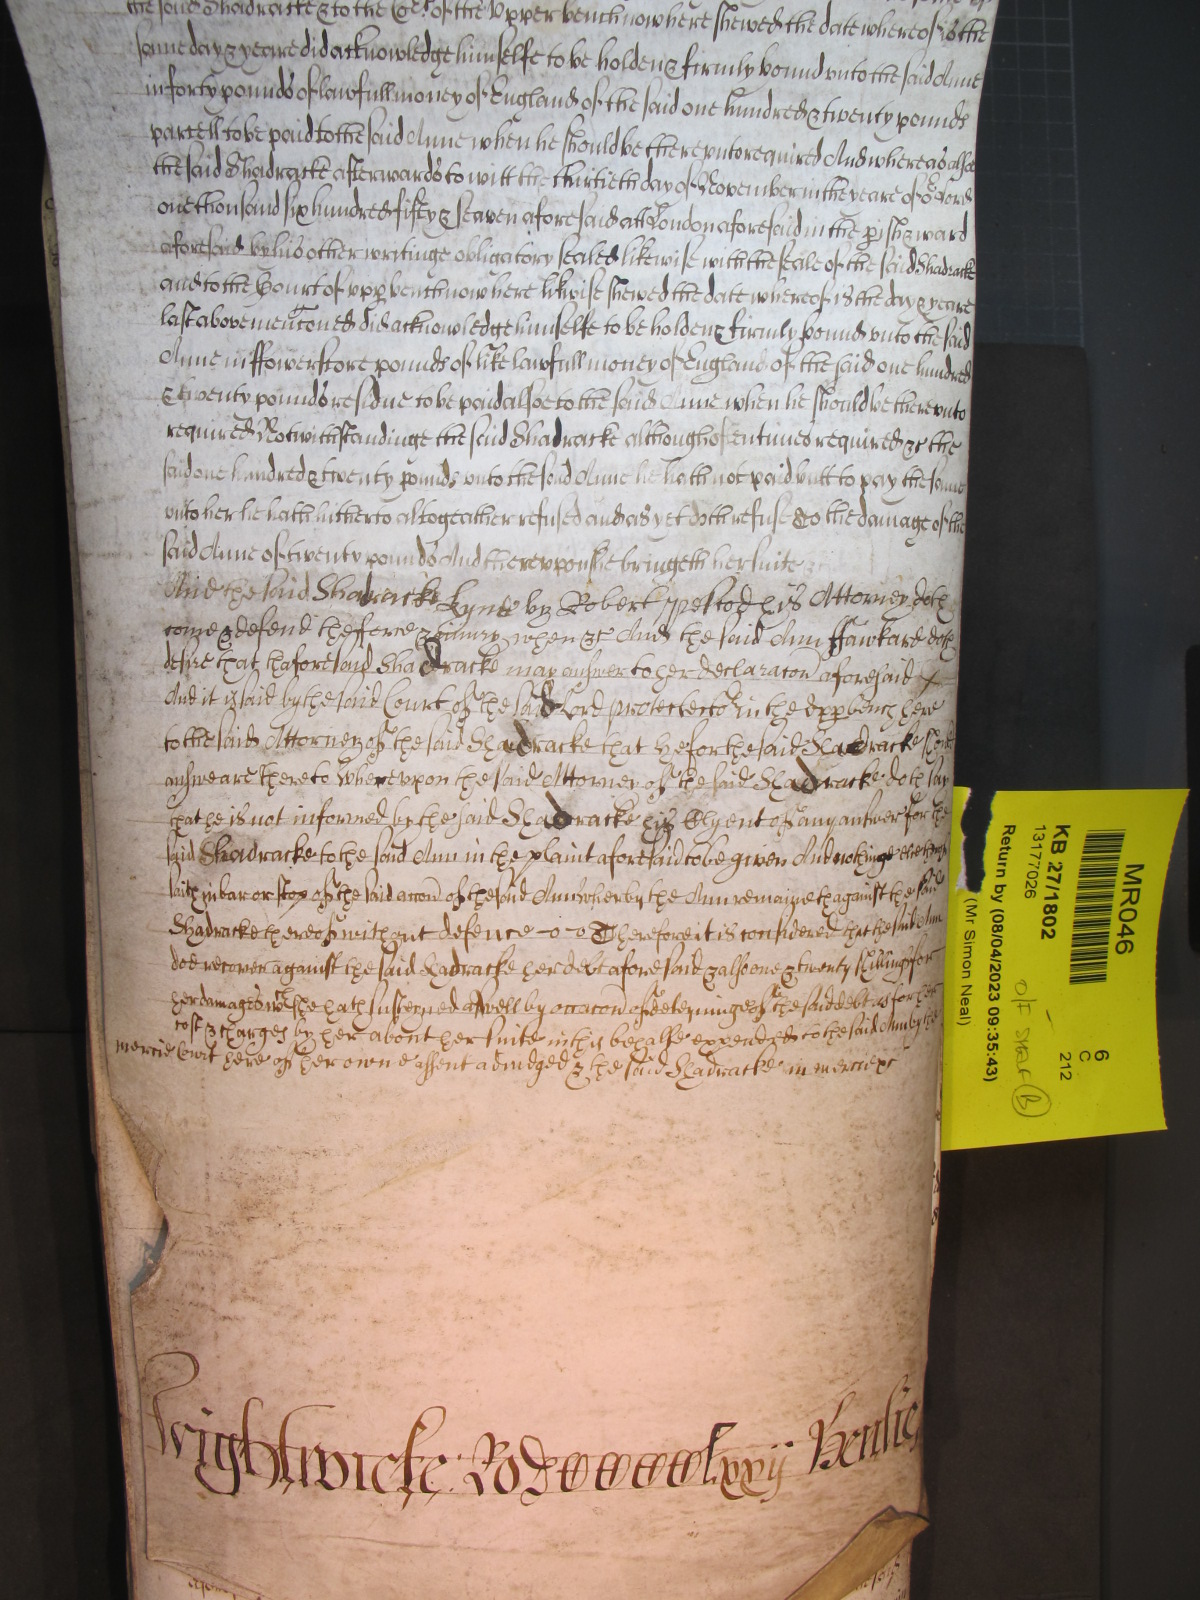 the said Shadracke & to the Cort of the Upper bench now here shewed the date whereof is the
same day & yeare did acknowledge himselfe to be holden & firmly bound unto the said Anne
in forty pounds of lawfull money of England of the said one hundred & twenty pounds
parcell to be paid to the said Anne when he should be thereunto required And whereas alsoe
the said Shadracke afterwards to witt the thirtieth day of November in the yeare of or Lord
one thousand six hundred fifty & seaven aforesaid att London aforesaid in the pish & ward
aforesaid by his other writinge obligatory sealed likewise with the seale of the said Shadracke
and to the Court of upp bench now here likwise shewed the date whereof is the day & yeare
last above mencioned did acknowledge himselfe to be holden & firmly bound unto the said
Anne in ffowerscore pounds of like lawfull money of England of the said one hundred
& twenty pounds residue to be paid alsoe to the said Anne when he should be thereunto
required Notwithstandinge the said Shadracke although oftentimes required &c the
said one hundred & twenty pounds unto the said Anne he hath not paid butt to pay the same
unto her he hath hitherto altogeather refused and as yet doth refuse to the damage of the
said Anne of twenty pounds And thereupon she bringeth her suite
And the said Shadracke Lynde by Robert his Attorney doth
come & defend the force & iniury when &c And the said Ann ffawkard doth
desire that thaforesaid Shadracke may answer to her declaracon aforesaid
And it is said by the said Court of the said Lord protector in the upp bench here
to the said Attorney of the said Shadracke that he for the said Shadracke
answeare thereto whereupon the said Attorney of the said Shadracke doth say
that he is not informed by the said Shadracke his Clyent of any answer for the
said Shadracke to the said Ann in the plaint aforesaid to be given And nothinge
saith in bar or stop of the said accon of the said Ann whereby the Ann remaineth against the said
Shadracke thereof without defence -o-o Therefore it is considered that the said Ann
doe recover against the said Shadracke her debt aforesaid & alsoe one & twenty shillings for
her damages wch she hath susteyned aswell by occacon of deteyninge of the said debt as for her
cost & charges by her about her suite in this behalfe expended to the said Ann by the
mercie Court here of her owne assent adiudged & the said Shadracke in mercie &c
Wightwicke: Ro D CCCCClxxij Henlie
MR046
KB 27/1802
13177026
Return by (08/04/2023 09:35:43)
(Mr Simon Neal)
6
C
212
O/F SHELF B